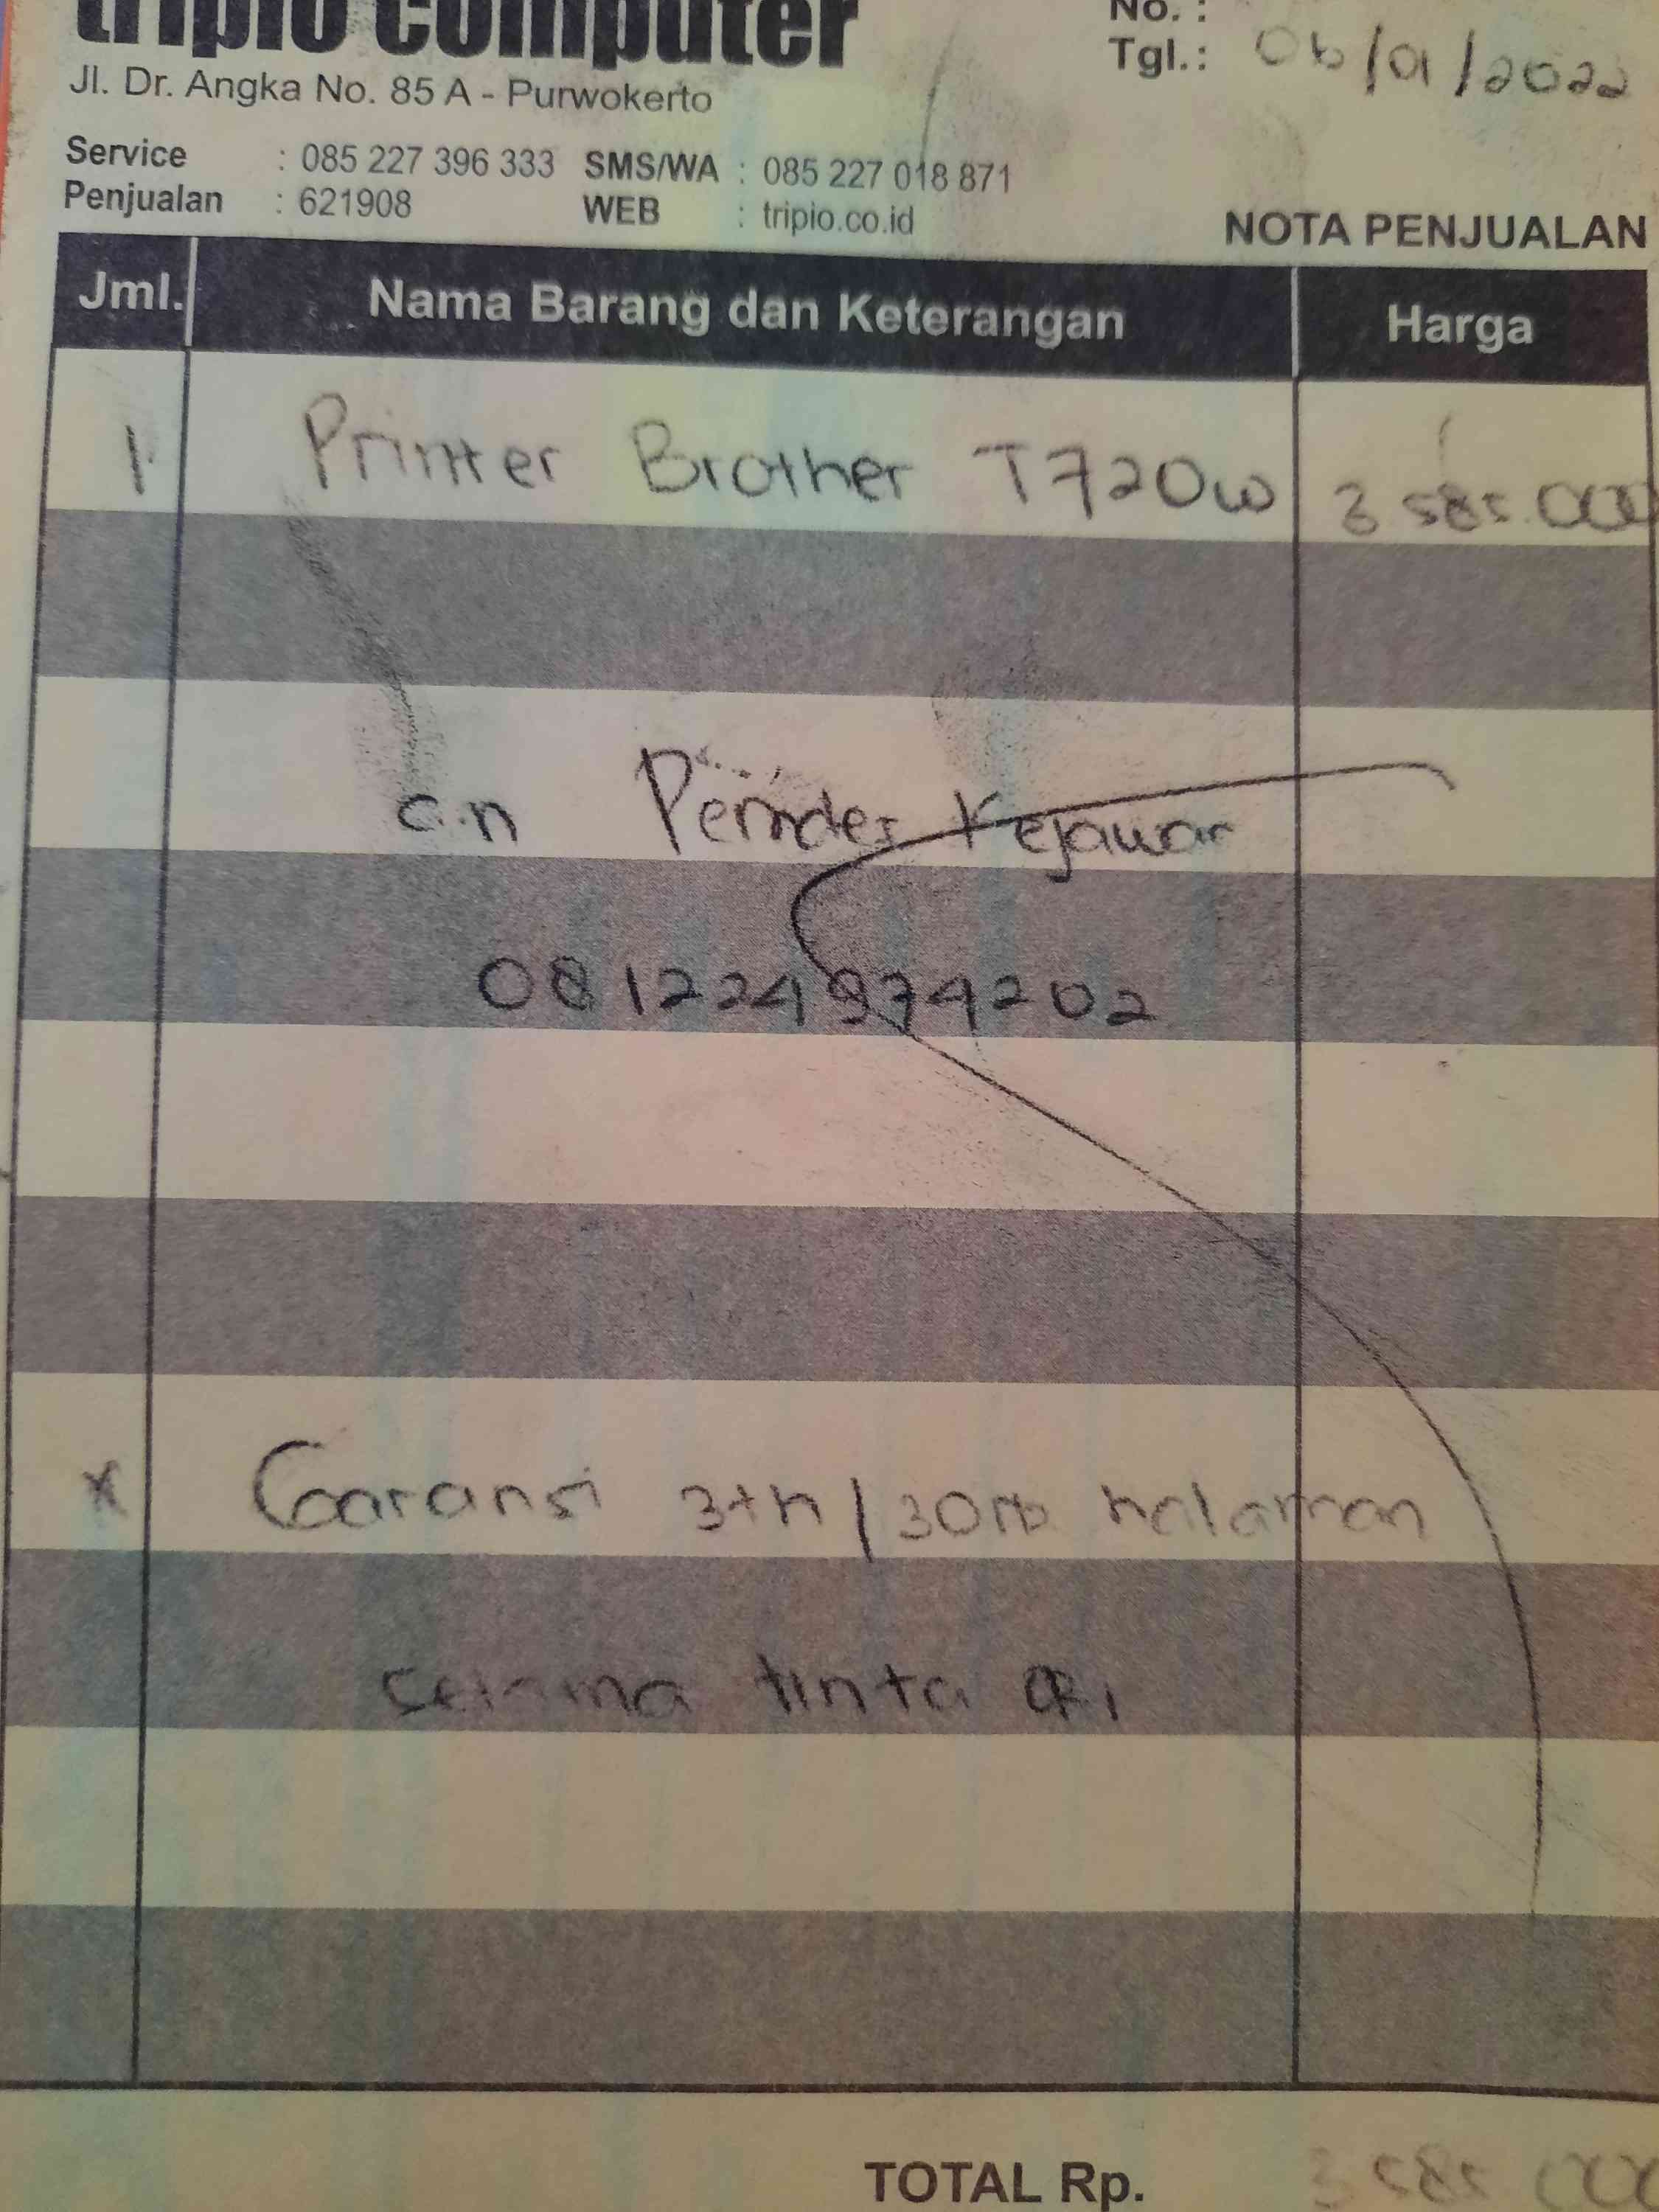 tripio computer
No. :
Tgl.: 06/01/2022
Jl. Dr. Angka No. 85 A - Purwokerto
Service : 085 227 396 333 SMS/WA : 085 227 018 871
Penjualan : 621908 WEB : tripio.co.id
NOTA PENJUALAN
Jml. Nama Barang dan Keterangan Harga
1 Printer Brother T720w 3 585.000
a.n Pemdes Kejawar
081224974202
* Garansi 3th / 30rb halaman
selama tinta ORI
TOTAL Rp. 3 585 000